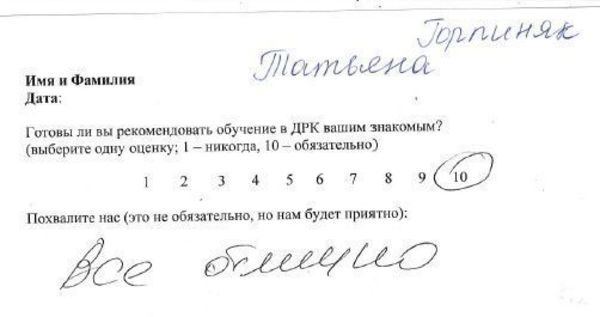 Горпиняк
Татьяна
Имя и Фамилия
Дата:
Готовы ли вы рекомендовать обучение в ДРК вашим знакомым?
(выберите одну оценку; 1 – никогда, 10 – обязательно)
1 2 3 4 5 6 7 8 9 10
Похвалите нас (это не обязательно, но нам будет приятно):
Все отлично